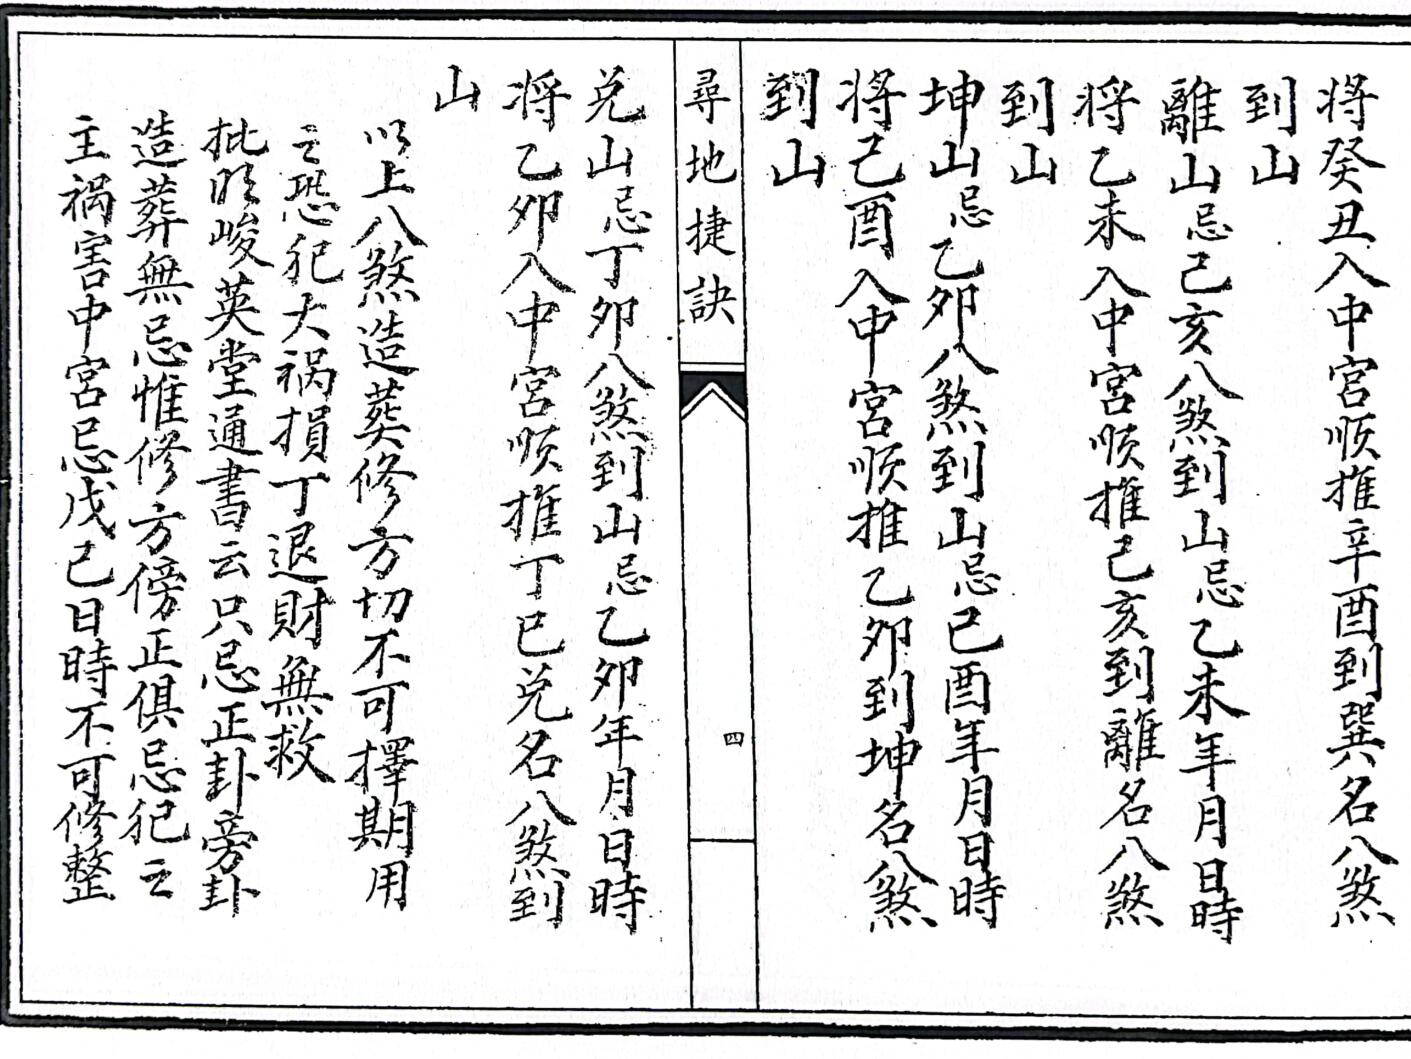 将癸丑入中宫顺推辛酉到巽名八煞
到山
離山忌己亥八煞到山忌乙未年月日時
将乙未入中宫顺推己亥到離名八煞
到山
坤山忌乙卯八煞到山忌己酉年月日時
将己酉入中宫顺推乙卯到坤名八煞
到山
尋地捷訣
四
兑山忌丁卯八煞到山忌乙卯年月日時
将乙卯入中宫顺推丁巳兑名八煞到
山
以上八煞造葬修方切不可擇期用
之恐犯大祸損丁退財無救
批明峻英堂通書云只忌正卦旁卦
造葬無忌惟修方傍正俱忌犯之
主祸害中宫忌戊己日時不可修整